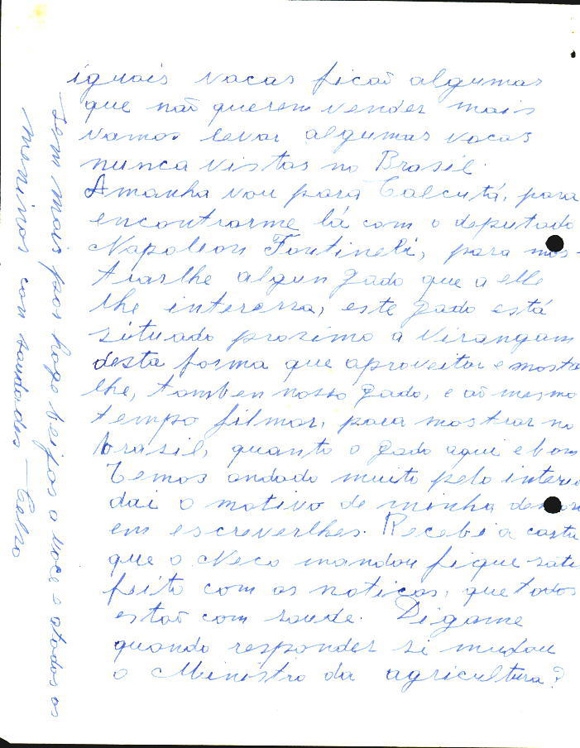 iguais vacas ficaõ algumas
que não querem vender mais
vamos levar algumas vacas
nunca vistas no Brasil.
Amanha vou para Calcutá, para
encontrarme lá com o deputado
Napoleon Fontineli, para mos-
trarlhe algun gado que a elle
lhe interessa, este gado está
situado proximo a Virangam
desta forma que aproveitar e mostra
lhe, tamben nosso gado, e ao mesmo
tempo filmar, para mostrar no
brasil, quanto o gado aqui e bom
Temos andado muito pelo interio
dai o motivo de minha demora
em escreverlhes. Recebi a carta
que o Neco mandou fique satis
feito com as noticas, que todos
estaõ com saude. Digame
quando responder si mudou
o Ministro da agricultura?
Sem mais por hoge beijos a voce e a todos os
meninos con saudades — Celso